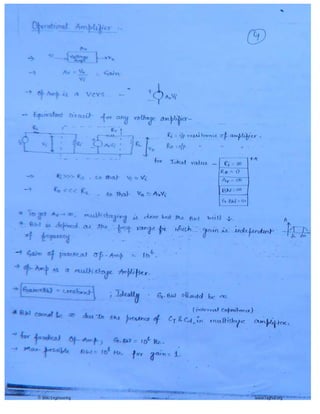 Operational Amplifier :-
4
Av
Vi → Voltage Amp → Vo
→ Av = Vo/Vi ; Gain
→ Op-Amp is a VCVS. - AvVi
- Equivalent circuit for any voltage amplifier-
Rs Ro
Vs Vi Ri AvVi RL Vo
Ri = i/p resistance of amplifier.
Ro = o/p
for Ideal value - Ri = ∞
Ro = 0
Av = ∞
BW = ∞
G.BW = ∞
→ Ri >>> Rs , so that Vi ≈ Vs
→ Ro <<< RL , so that Vo = AvVi
* To get Av → ∞, multistaging is done but the BW will ↓.
* BW is defined as the freq range for which gain is independent
of frequency
→ Gain of practical Op-Amp = 10⁶.
→ Op-Amp is a multistage Amplifier.
→ Gain×BW = constant ; Ideally G.BW should be ∞
(internal capacitance)
* BW cannot be ∞ due to the presence of in multistage amplifier.
→ for practical Op-Amp, G.BW = 10⁶ Hz.
→ Max possible BW = 10⁶ Hz. for gain = 1.